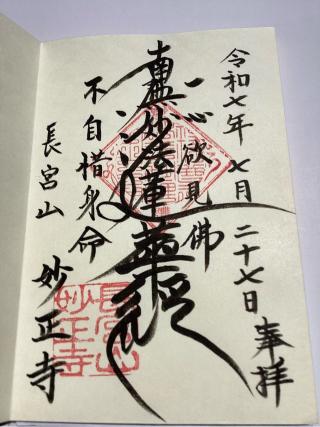 令和七年七月二十七日奉拝
一心欲見佛
南無妙法蓮華経
不自惜身命
長宮山 妙正寺
長宮山
妙正寺